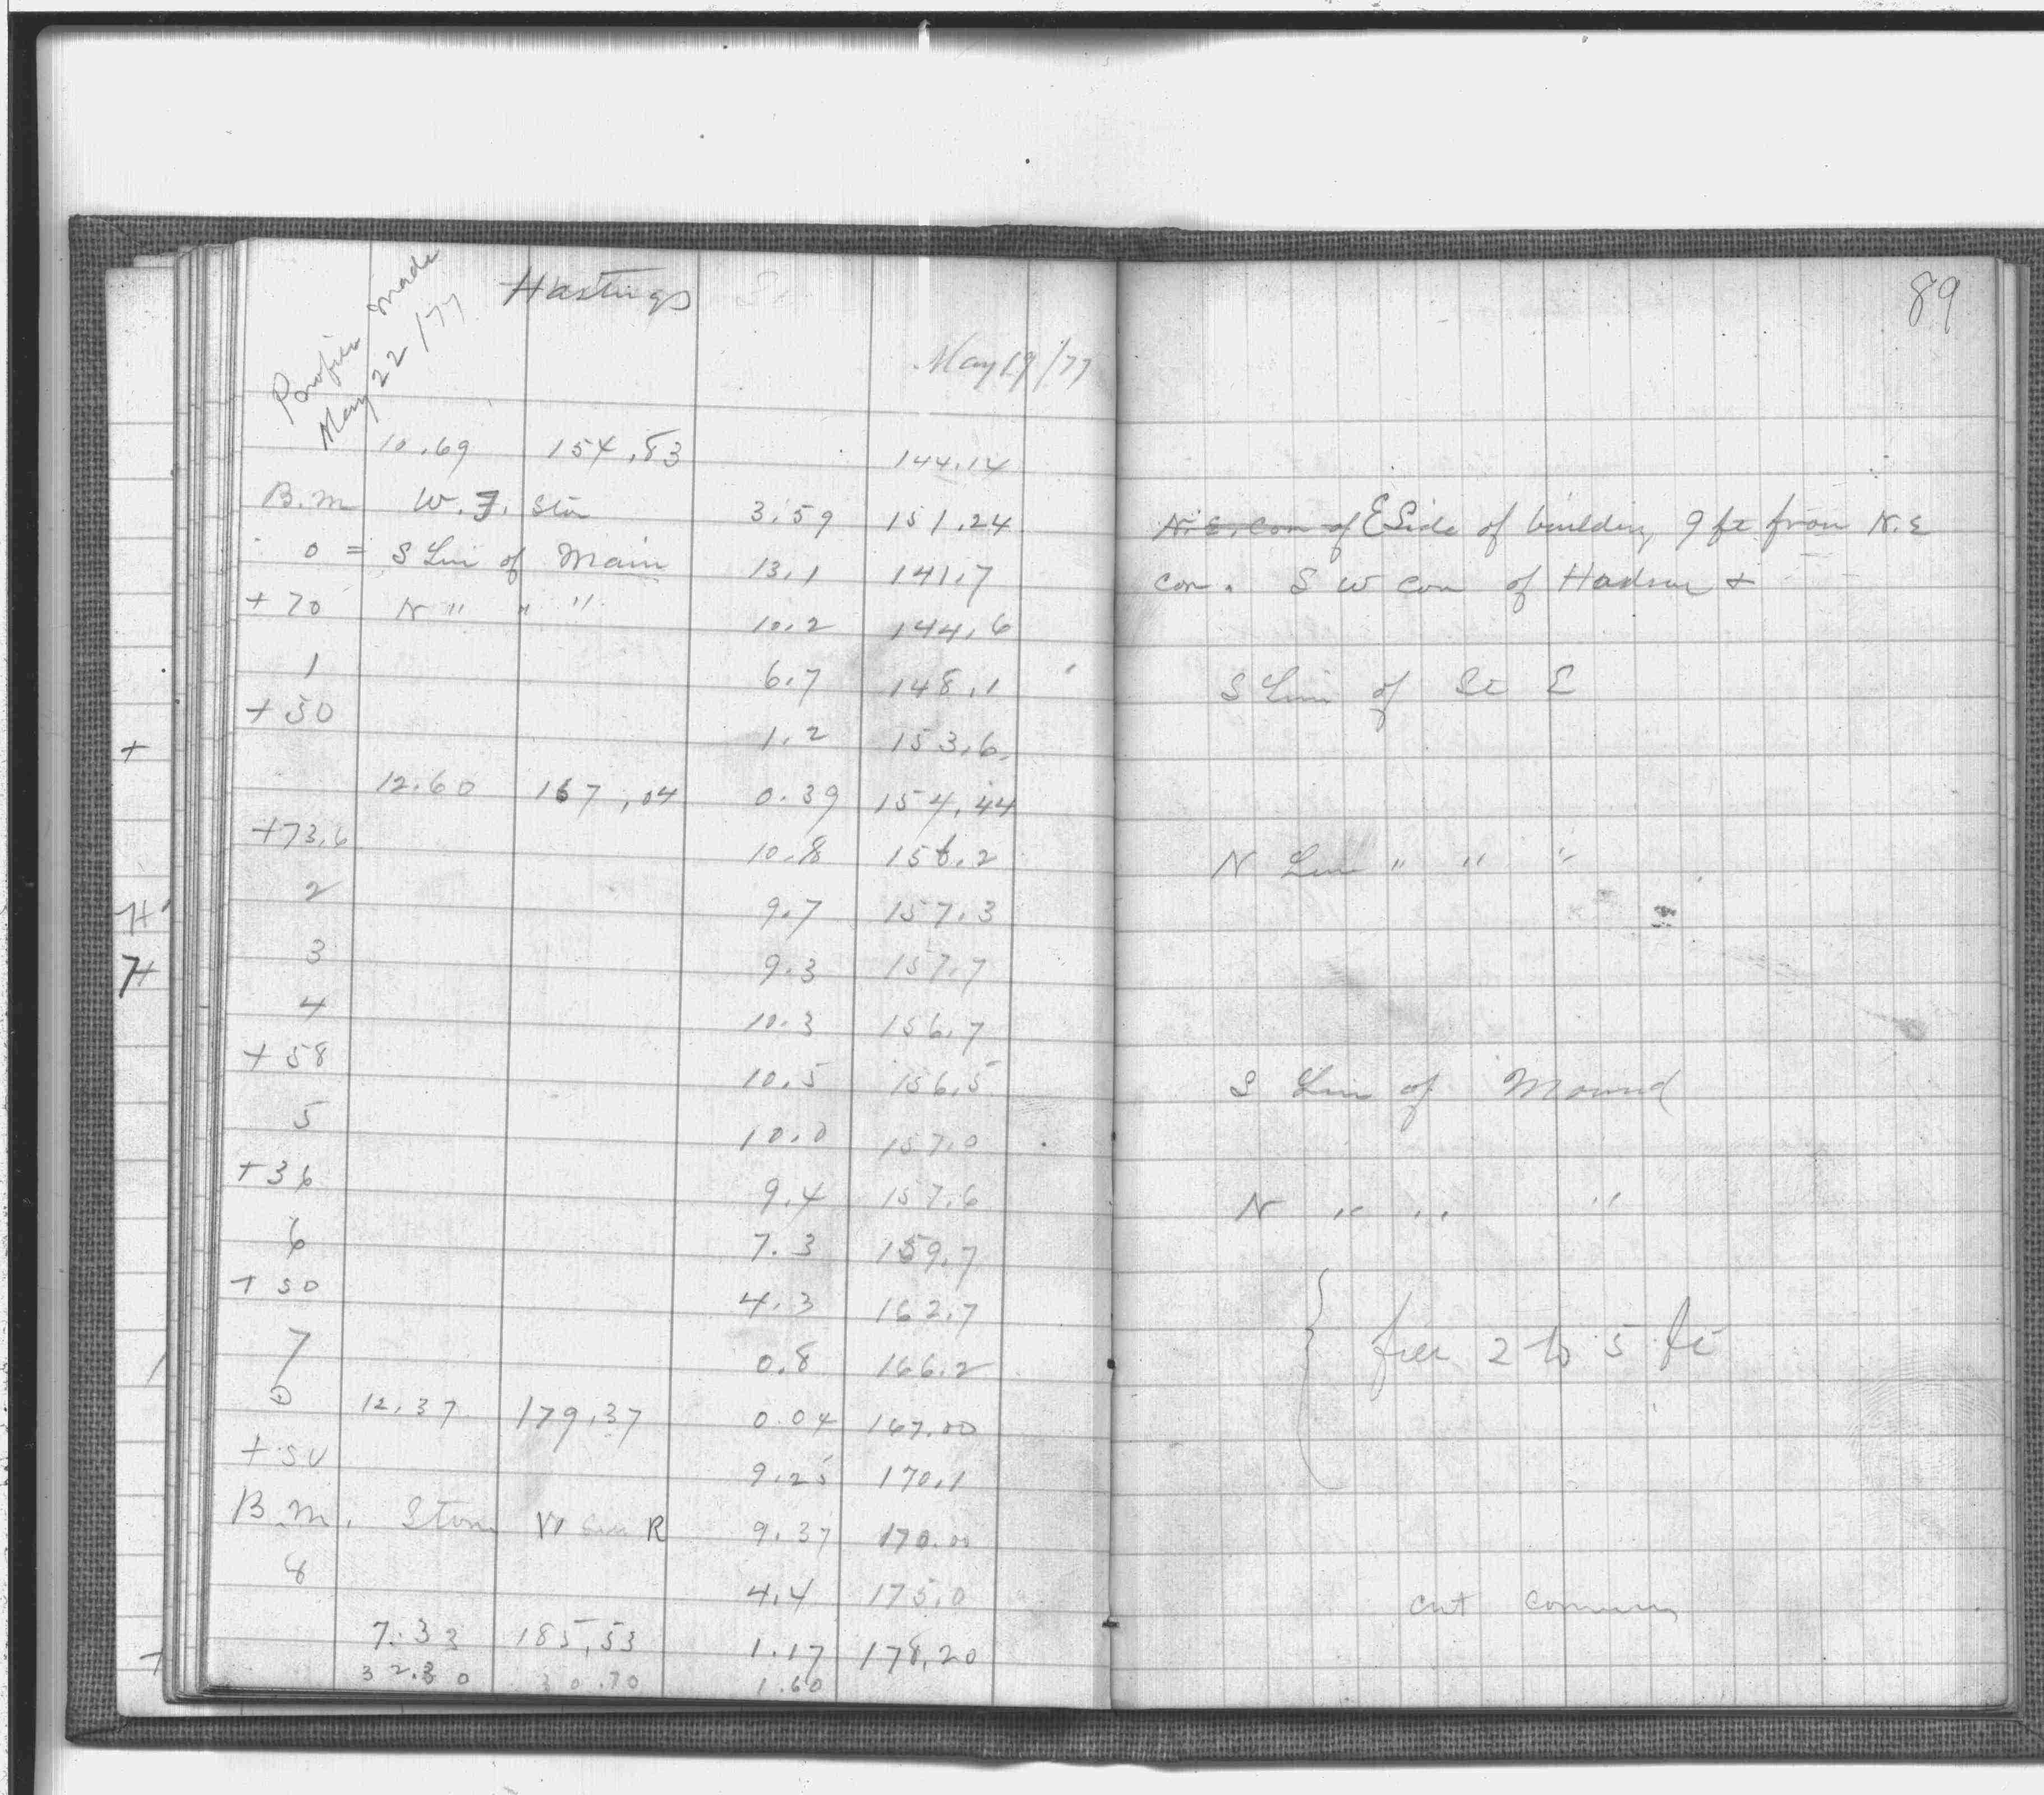 Profile made
May 22/77
Hastings St
May 19/77
10.69 154.83 144.14
B.M W.F. Sto 3.59 151.24
0 = S Lin of Main 13.1 141.7
+70 N " " " 10.2 144.6
1 6.7 148.1
+50 1.2 153.6
12.60 167.04 0.39 154.44
+73.6 10.8 156.2
2 9.7 157.3
3 9.3 157.7
4 10.3 156.7
+58 10.5 156.5
5 10.0 157.0
+36 9.4 157.6
6 7.3 159.7
+50 4.3 162.7
7 0.8 166.2
⊙ 12.37 179.37 0.04 167.00
+50 9.25 170.1
B.M. Ston W R 9.37 170.00
8 4.4 175.0
7.33 185.53 1.17 178.20
32.30 30.70 1.60
+
H
7+
+
89
N.E. cor of E Side of building 9 ft from N.E
cor. S W cor of Hadson +
S Lin of St E
N Lin " " "
S Lin of Mound
N " " "
2 to 5 ft
cut